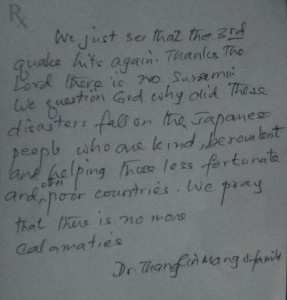 ℞
We just see that the 3rd
quake hits again. Thanks the
Lord there is no Sunamin
We question God why did these
disasters fall on the Japanese
people who are kind, benovalent
and helping those less fortunate
and other poor countries. We pray
that there is no more
calamaties
Dr. Thang Cin Mang & family